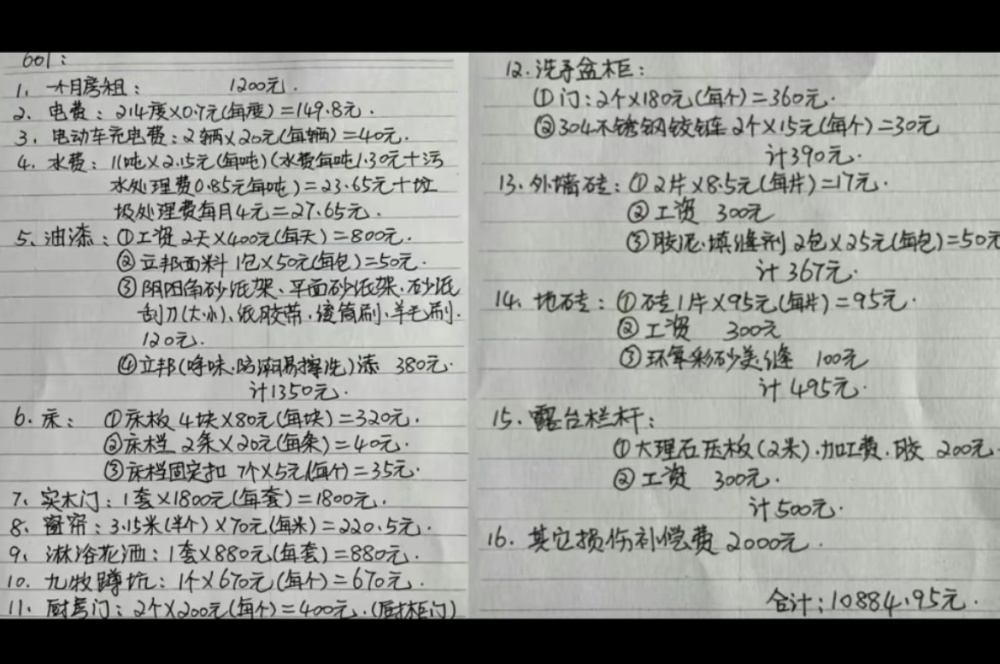 601：
1、一个月房租： 1200元.
2、电费：214度×0.7元(每度)=149.8元.
3、电动车充电费：2辆×20元(每辆)=40元.
4、水费：11吨×2.15元(每吨)(水费每吨1.30元+污
水处理费0.85元每吨)=23.65元+垃
圾处理费每月4元=27.65元.
5、油漆：①工资 2天×400元(每天)=800元.
②立邦面料 1包×50元(每包)=50元.
③阴阳角砂纸架、平面砂纸架、砂纸
刮刀(大小)、纸胶带、滚筒刷、羊毛刷.
120元.
④立邦(净味、防潮易擦洗)漆 380元.
计1350元.
6、床：①床板 4块×80元(每块)=320元.
②床档 2条×20元(每条)=40元.
③床档固定扣 7个×5元(每个)=35元.
7、实木门：1套×1800元(每套)=1800元.
8、窗帘：3.15米(半个)×70元(每米)=220.5元.
9、淋浴花洒：1套×880元(每套)=880元.
10、九牧蹲坑：1个×670元(每个)=670元.
11、厨房门：2个×200元(每个)=400元.(厨柜门)
12、洗手盆柜：
①门：2个×180元(每个)=360元.
②304不锈钢铰链 2个×15元(每个)=30元
计390元.
13、外墙砖：①2片×8.5元(每片)=17元.
②工资 300元
③胶泥、填缝剂 2包×25元(每包)=50元
计367元.
14、地砖：①砖1片×95元(每片)=95元.
②工资 300元
③环氧彩砂美缝 100元
计495元.
15、露台栏杆：
①大理石压板(2米)、加工费、胶 200元.
②工资 300元.
计500元.
16、其它损伤补偿费2000元.
合计：10884.95元.